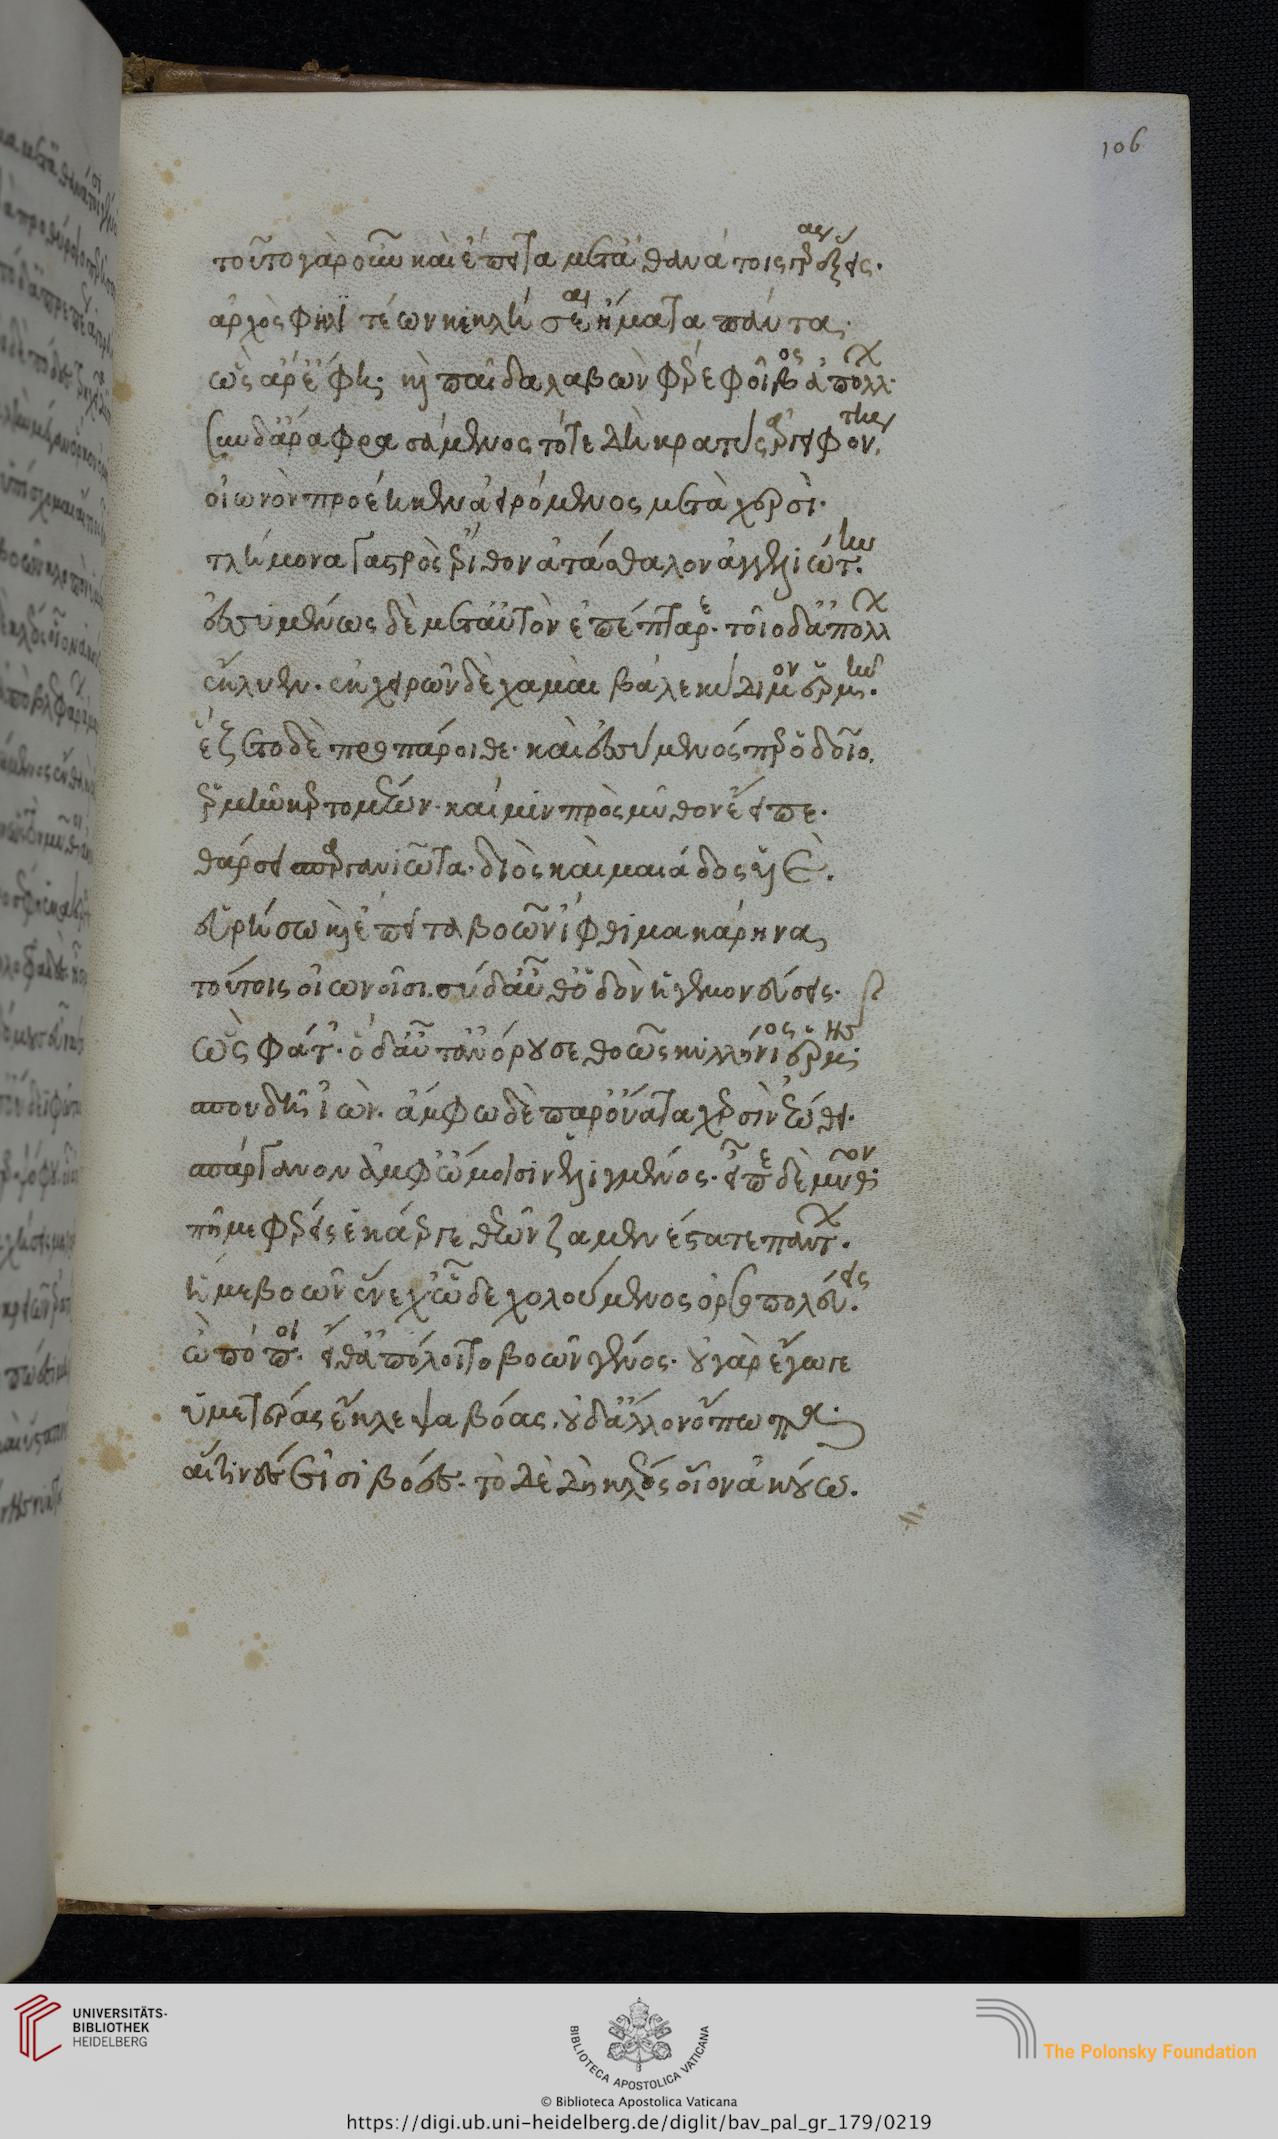 106
τοῦτο γὰρ οὖν καὶ ἔπειτα μετ' ἀθανάτοις γέρας ἕξεις.
ἀρχὸς φηλητέων κεκλήσεαι ἤματα πάντα.
ὣς ἄρ' ἔφη· καὶ παῖδα λαβὼν φέρε φοῖβος ἀπόλλων.
σὺν δ' ἄρα φρασάμενος τότε δὴ κρατὺς ἀργειφόντης.
οἰωνὸν προέηκεν ἀειρόμενος μετὰ χερσί.
τλήμονα γαστρὸς ἔριθον ἀτάσθαλον ἀγγελιώτην.
ἐσσυμένως δὲ μετ' αὐτὸν ἐπέπταρε. τοῖο δ' ἀπόλλων
ἔκλυεν. ἐκ χειρῶν δὲ χαμαὶ βάλε κύδιμον ἑρμῆν.
ἕζετο δὲ προπάροιθε. καὶ ἐσσύμενός περ ὁδοῖο.
ἑρμῆν κερτομέων. καί μιν πρὸς μῦθον ἔειπε.
θάρσει σπαργανιῶτα. διὸς καὶ μαιάδος υἱέ.
εὑρήσω καὶ ἔπειτα βοῶν ἴφθιμα κάρηνα
τούτοις οἰωνοῖσι. σὺ δ' αὖθ' ὁδὸν ἡγεμονεύσεις.
ὣς φάτ'. ὁ δ' αὖτ' ἀνόρουσε θοῶς κυλλήνιος ἑρμῆς
σπουδῇ ἰών. ἄμφω δὲ παρ' οὔατα χερσὶν ἐώθει.
σπάργανον ἀμφ' ὤμοισιν ἐελιγμένος. εἶπε δὲ μῦθον
πῆ με φέρεις ἑκάεργε θεῶν ζαμενέστατε πάντων.
ἦ με βοῶν ἕνεχ' ὧδε χολούμενος ὀρσοπολεύεις.
ὢ πόποι. εἴθ' ἀπόλοιτο βοῶν γένος. οὐ γὰρ ἔγωγε
ὑμετέρας ἔκλεψα βόας. οὐδ' ἄλλον ὄπωπα.
αἵτινές εἰσι βόες. τὸ δὲ δὴ κλέος οἶον ἀκούω.
UNIVERSITÄTS-
BIBLIOTHEK
HEIDELBERG
BIBLIOTECA APOSTOLICA VATICANA
© Biblioteca Apostolica Vaticana
The Polonsky Foundation
https://digi.ub.uni-heidelberg.de/diglit/bav_pal_gr_179/0219